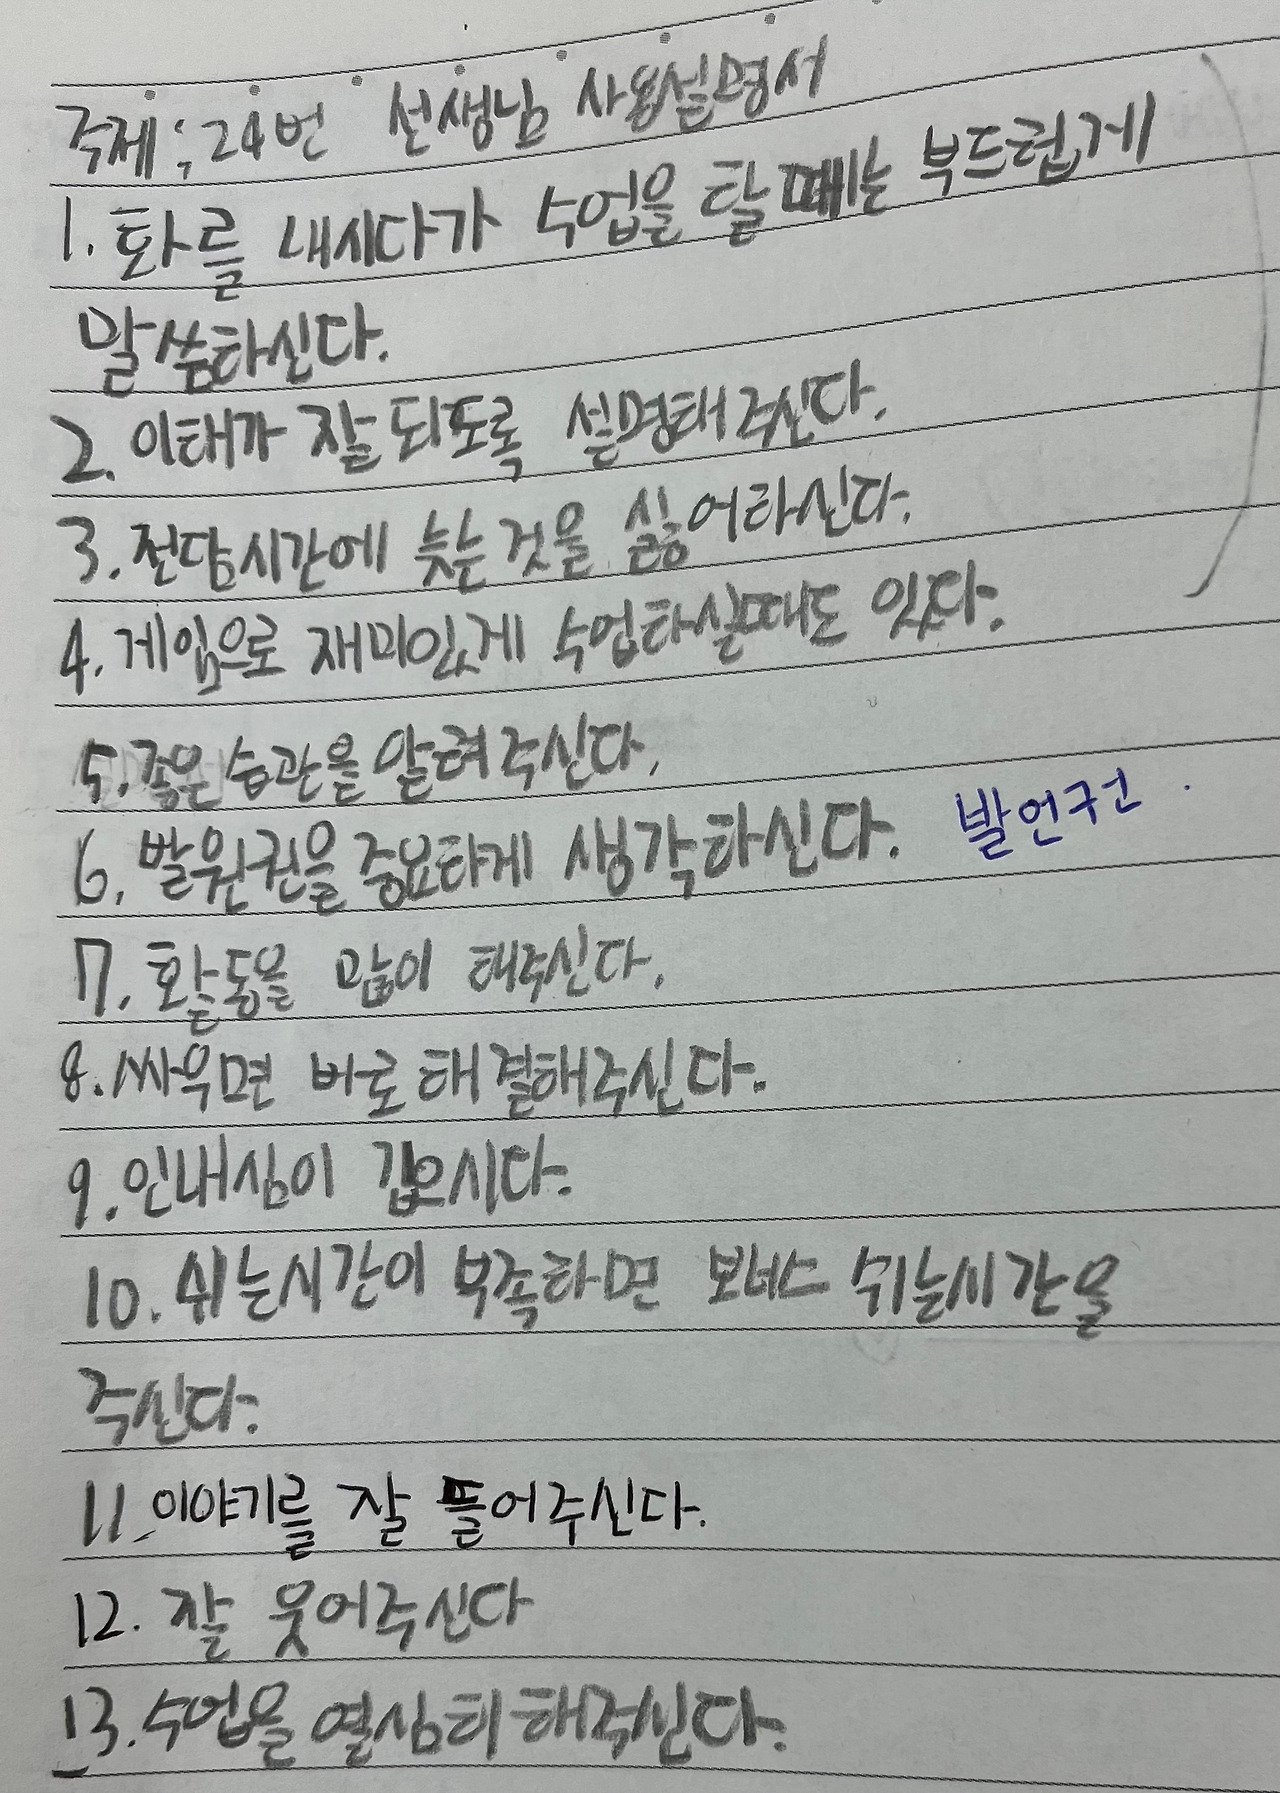 주제 : 24번 선생님 사용설명서
1. 화를 내시다가 수업을 할 때는 부드럽게
말씀하신다.
2. 이해가 잘 되도록 설명해주신다.
3. 전담시간에 늦는것을 싫어하신다.
4. 게임으로 재미있게 수업하실때도 있다.
5. 좋은 습관을 알려주신다.
6. 발원권을 중요하게 생각하신다. 발언권
7. 활동을 많이 해주신다.
8. 싸우면 바로 해결해주신다.
9. 인내심이 깊으시다.
10. 쉬는시간이 부족하면 보너스 쉬는시간을
주신다.
11. 이야기를 잘 들어주신다.
12. 잘 웃어주신다
13. 수업을 열심히 해주신다.